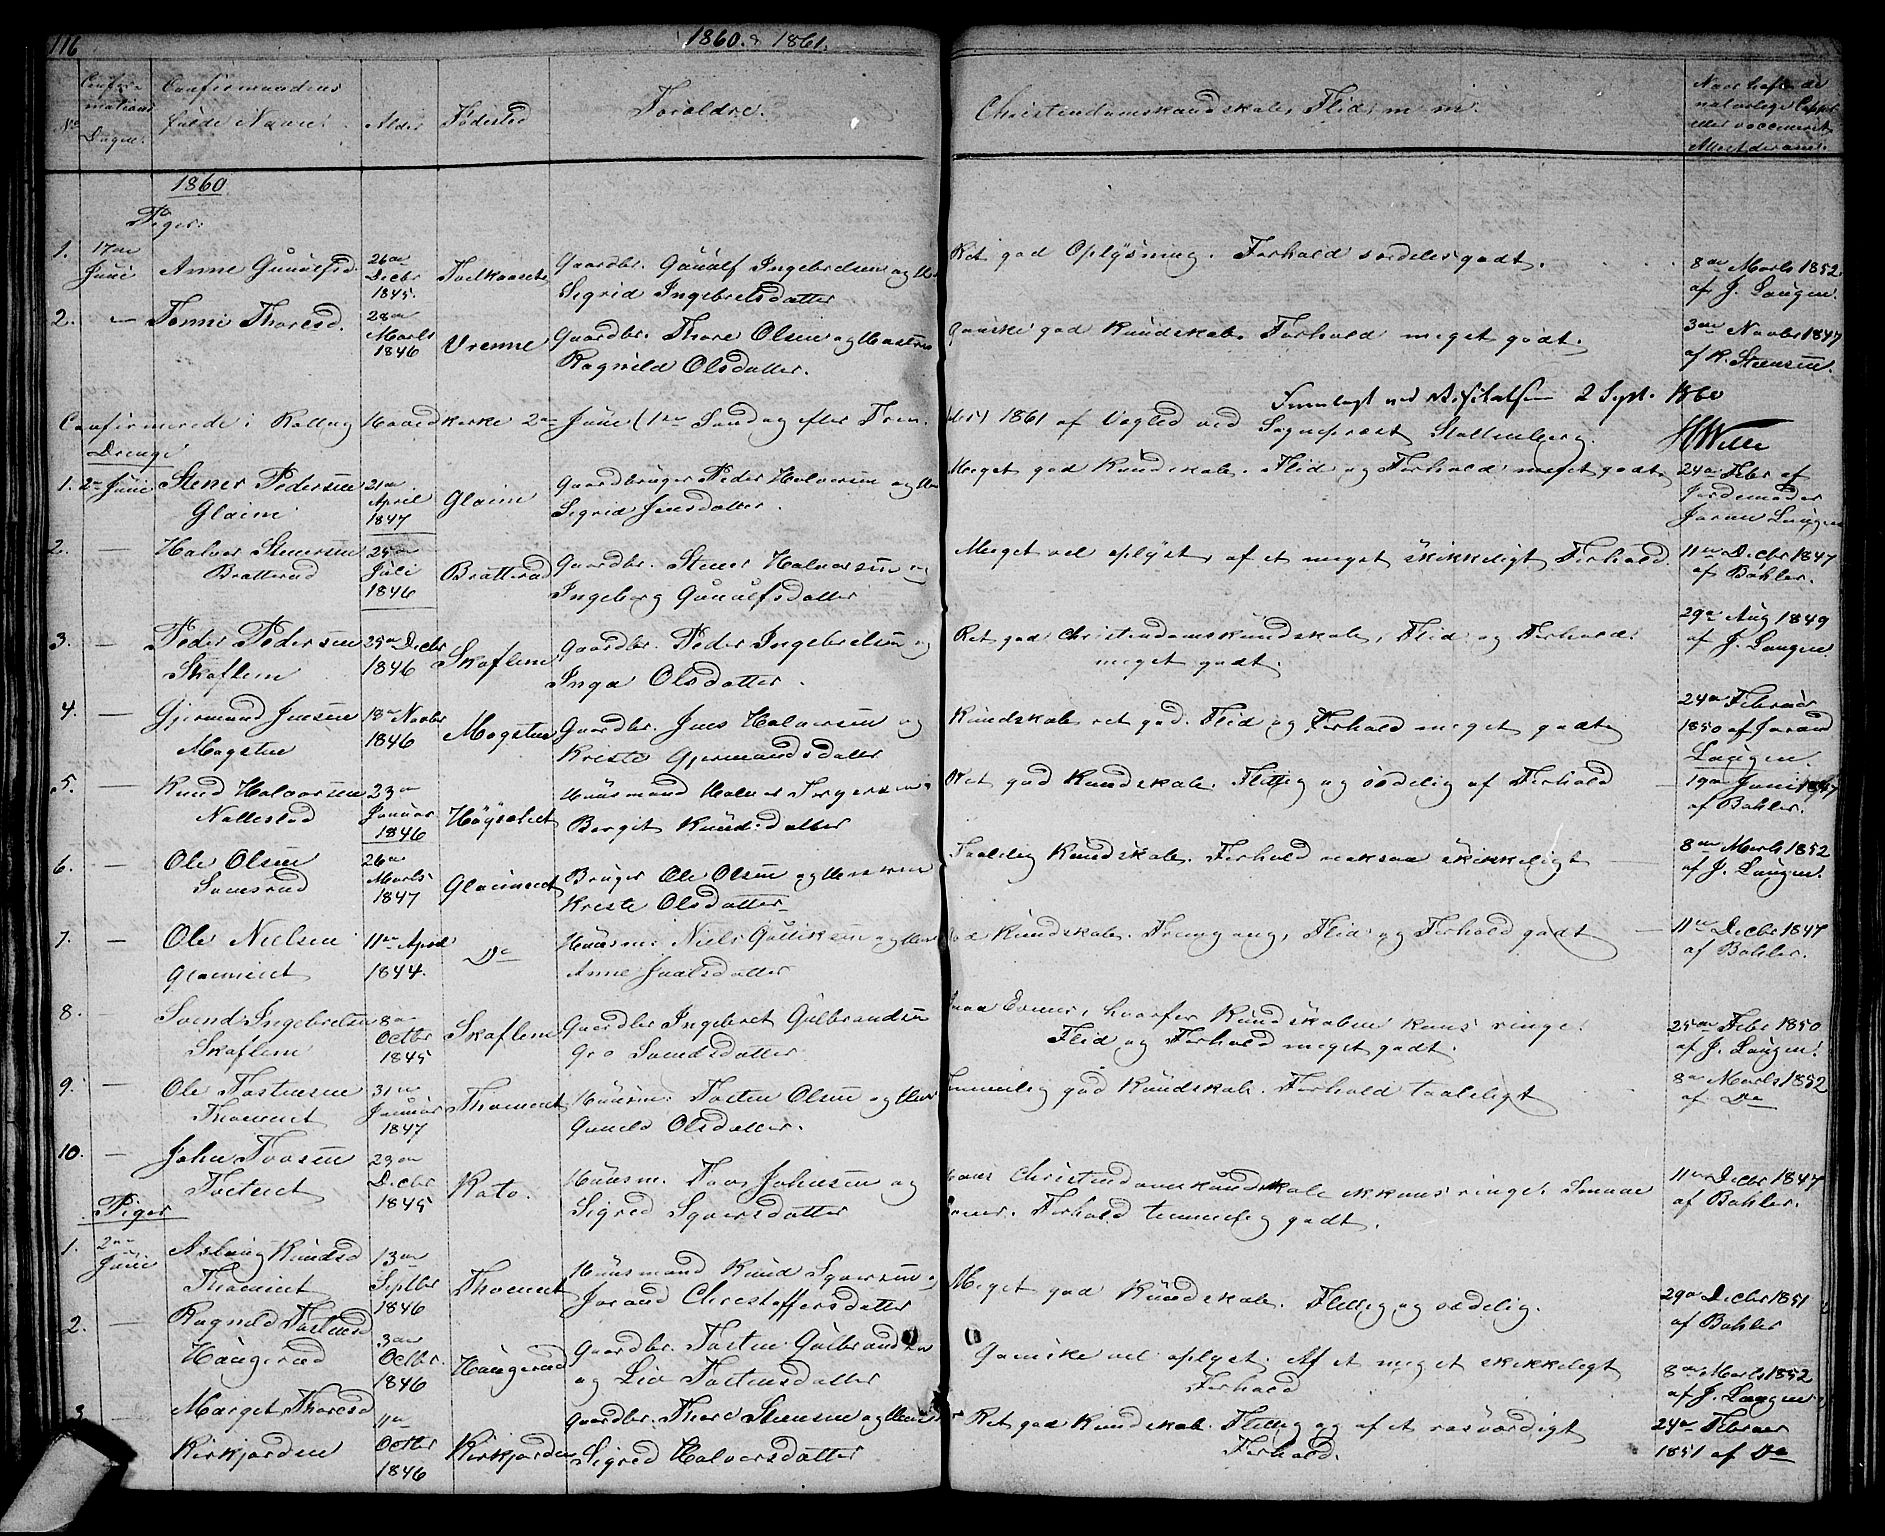 116
1860 & 1861.
No
Confirmations Dagen.
Confirmandens fulde Navn.
Alder
Fødested
Forældre.
Christendomskundskab, Flid, m. m.
1860
Piger:
1. 17de Juni Anne Gunulfsd. 26de Decbr 1845. Gaardbr. Gunulf Ingebretsen og
Sigrid Ingebretsdatter
Ret god Oplysning. Forhold særdeles godt. 8de Marts 1852 af J. Laugen.
2. — Tonne Thoresd. 28de Marts 1846 Vrenne Gaardbr. Thore Olsen og
Ragnild Olsdatter.
Ganske god Kundskab. Forhold meget godt. 3die Novbr 1847 af K. Steensen.
Fremlagt ved Visitatsen 2 Sept. 1860
HWille
Confirmerede i Rollag Hovedkirke 2den Juni (1ste Søndag efter Tref.) 1861 af Vogled ved Sognepræst Stoltenberg.
Drenge
1. 2den Juni Stener Pedersen Glaim 21de April 1847 Glaim Gaardbruger Peder Halvorsen og
Sigrid Jensdatter.
Meget god Kundskab. Flid og Forhold meget godt 24de Febr af Jordemoder Joran Laugen
2. — Halvor Stenersen Bratterud 25de Juli 1846 Bratterud Gaardbr. Stener Halvorsen og
Ingeborg Gunulfsdatter
Meget vel oplyst, af et meget skikkeligt Forhold. 11te Decbr 1847 af Bøhler.
3. — Peder Pedersen Skaflem 25de Decbr 1846 Skaflem Gaardbr. Peder Ingebretsen og
Inga Olsdatter.
Ret god Christendomskundskab, Flid og Forhold
meget godt. 29de Aug 1849 af J. Laugen.
4. — Gjermund Jensen Mogsten 18de Novbr 1846 Mogsten Gaardbr. Jens Halvorsen og
Kriste Gjermundsdatter
Kundskab ret god. Flid og Forhold meget godt 24de Februar 1850 af Jorand Laugen.
5. — Knud Halvorsen 23de Januar 1846 Huusmand Halvor Torgersen
Bergit Knudsdatter
Ret god Kundskab. Flittig og sædelig af Forhold 19de Juni 1847 af Bøhler.
6. — Ole Olsen 26de Marts 1847 Glaimeiet Bruger Ole Olsen og
Kriste Olsdatter
Taalelig Kundskab. Forhold noksaa skikkeligt 8de Marts 1852 af J. Laugen.
7. — Ole Nielsen Glaimeiet 11te April 1844. Do Huusm. Niels Gulliksen og
Anne
Kundskab. Fremgang, Flid og Forhold godt 11te Decbr 1847 af Bøhler.
8. — Svend Ingebretsen Skaflem 8de Octbr 1845 Skaflem Gaardbr. Ingebret Gulbrandsen
Gro Svendsdatter
Smaa Evner, hvorfor Kundskaben kuns ringe.
Flid og Forhold meget godt. 25de Febr 1850 af J. Laugen.
9. — Ole Tostensen Thomeiet 31te Januar 1847 Thomeiet Huusm. Tosten Olsen og
Gunild Olsdatter.
Temmelig god Kundskab. Forhold taaleligt 8de Marts 1852 af Do
10. — John Tovsen 23de Decbr 1845 Huusm. Tov Johnsen og
Sigrid Syversdatter
Hans Christendomskundskab er kuns ringe. Smaae
Evner. Forhold temmelig godt. 11te Decbr 1847 af Bøhler.
Piger
1. 2den Juni Aslaug Knudsd Thomeiet 13de Septbr 1846 Thomeiet Huusmand Knud Syversen og
Jorand Christoffersdatter
Meget god Kundskab. Flittig og sædelig. 29de Decbr 1851 af Bøhler
2. — Ragnild Tostensd Haugerud 3die Octbr. 1846 Haugerud Gaardbr. Tosten Gulbrandsen
og Liv Tostensdatter
Ganske vel oplyst. Af et meget skikkeligt
Forhold 8de Marts 1852 af J. Laugen
3. — Marget Thoresd Kirkjorden 11te Octbr 1846 Kirkjorden Gaardbr. Thore Stensen og
Sigrid Halvorsdatter
Ret god Kundskab. Flittig og af et rosværdigt
Forhold. 24de Februar 1851 af Do